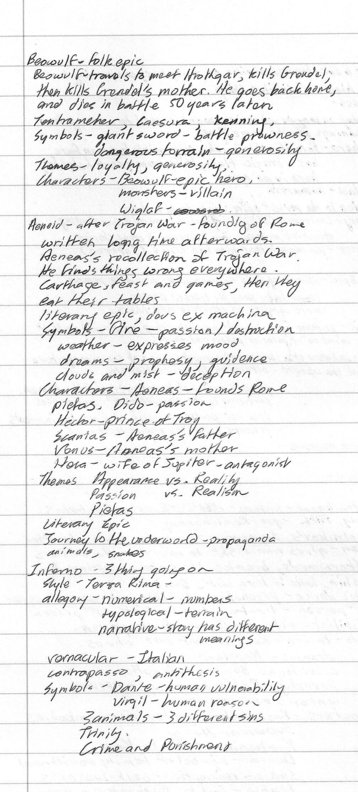 Beowulf - folk epic
Beowulf travels to meet Hrothgar, kills Grendel,
then kills Grendel's mother. He goes back home,
and dies in battle 50 years later.
Tentrameter, Caesura, kenning,
Symbols - giant sword - battle prowness.
dangerous terrain - generosity
Themes - loyalty, generosity.
Characters - Beowulf - epic hero.
monsters - villain
Wiglaf -
Aeneid - after Trojan War - founding of Rome
written long time afterwards.
Aeneas's recollection of Trojan War.
He finds things wrong everywhere.
Carthage, feast and games, then they
eat their tables
literary epic, deus ex machina
Symbols - Fire - passion/destruction
weather - expresses mood
dreams - prophesy, guidence
clouds and mist - deception
Characters - Aeneas - founds Rome
pietas. Dido - passion
Hector - prince of Troy
- Aeneas's father
Venus - Aeneas's mother
Hera - wife of Jupiter - antagonist
Themes Appearance vs. Reality
Passion vs. Realism
Pietas
Literary Epic
Journey to the underworld - propaganda
animals, snakes
Inferno - 3 thing going on
style - Terza Rima -
allegory - numerical - numbers
typological - terrain
narrative - story has different
meanings
vernacular - Italian
contrapasso, antithesis
Symbols - Dante - human vulnerability
Virgil - human reason
3 animals - 3 different sins
Trinity.
Crime and Punishment